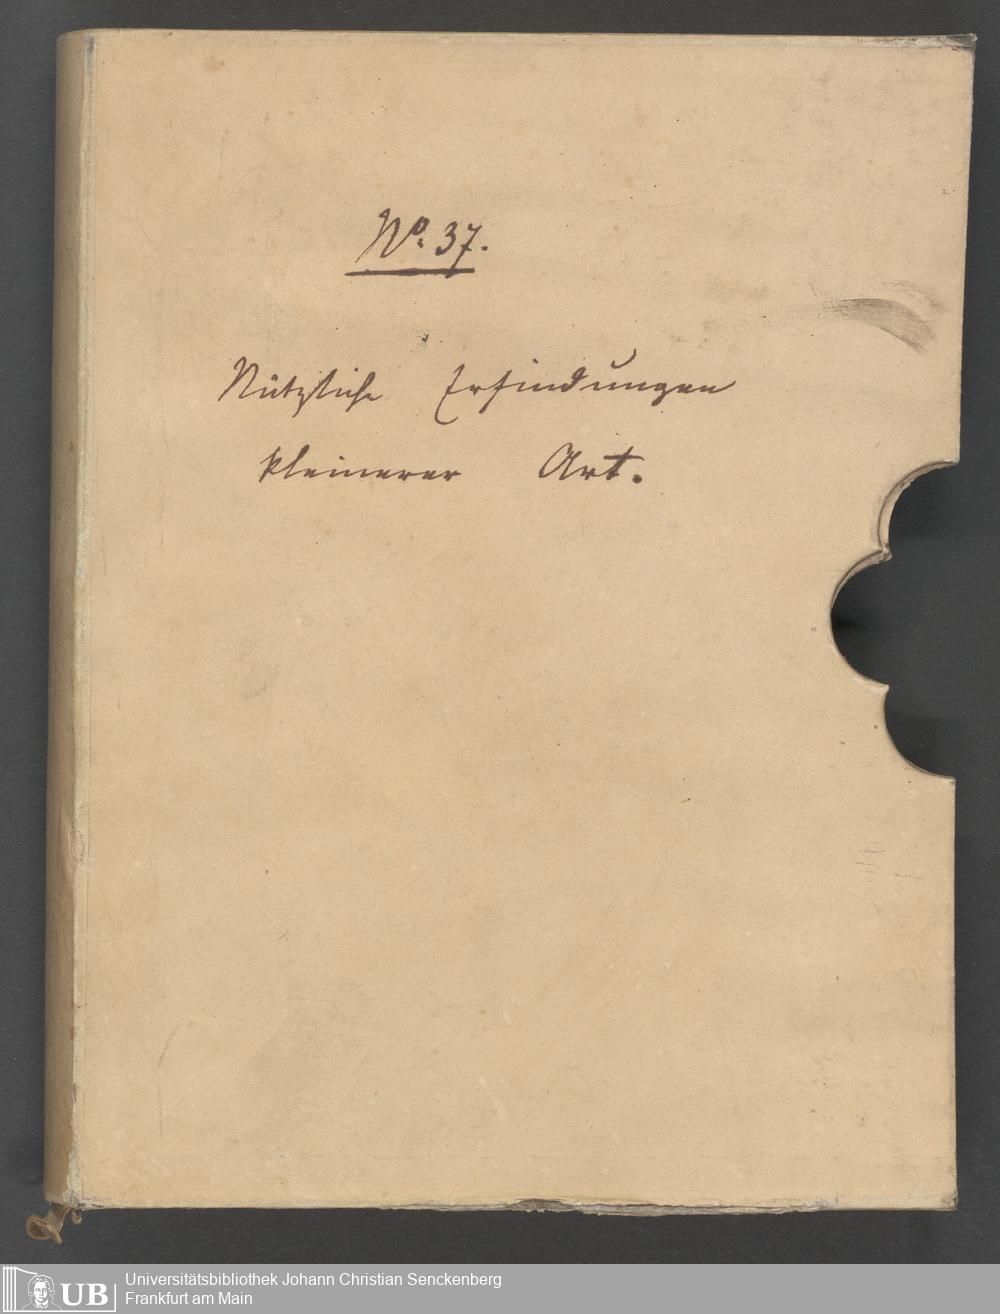 No. 37.
Nützliche Erfindungen
kleinerer Art.
UB
Universitätsbibliothek Johann Christian Senckenberg
Frankfurt am Main